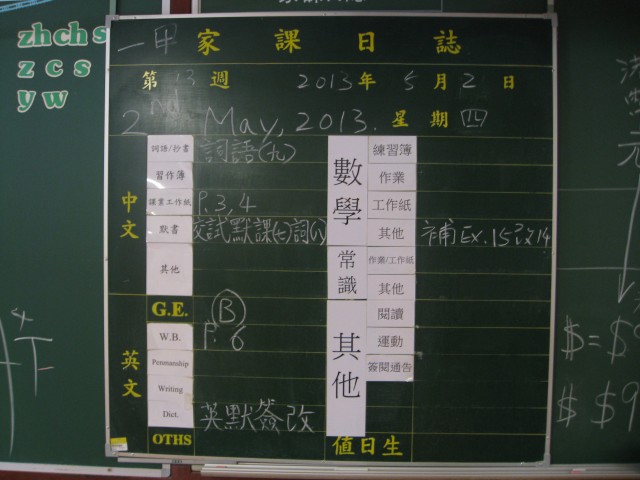 zhchs
z c s
y w
一甲 家課日誌
第13週 2013年5月2日
2nd May, 2013. 星期四
中文
詞語/抄書 詞語(九)
習作簿
課業工作紙 P.3,4
默書
其他
數學
練習簿
作業
工作紙
其他 補Ex.15改14
常識
作業/工作紙
其他
英文
G.E. B
W.B. P. 6
Penmanship
Writing
Dict. 英默簽改
OTHS
其他
閱讀
運動
簽閱通告
值日生
4
$=$
$ $9